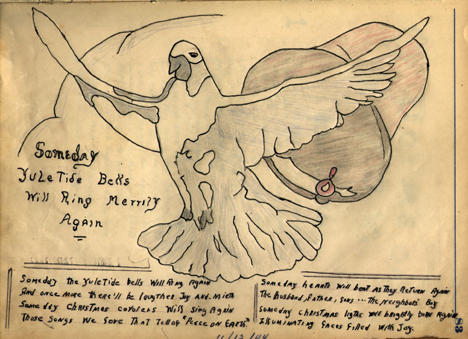 Someday
YuleTide Bells
Will Ring Merrily
Again
Someday the YuleTide bells Will Ring Again
And once more there'll be laughter Joy And Mirth
Some day Christmas carolers Will Sing Again
Those Songs We Love That Tell of "Peace on Earth"
Someday hearts Will beat As They Return Again
The Husband, Father, Sons ... The Neighbors Boy
Someday Christmas lights will brightly burn Again
Illuminating Faces Filled With Joy.
11/12/44